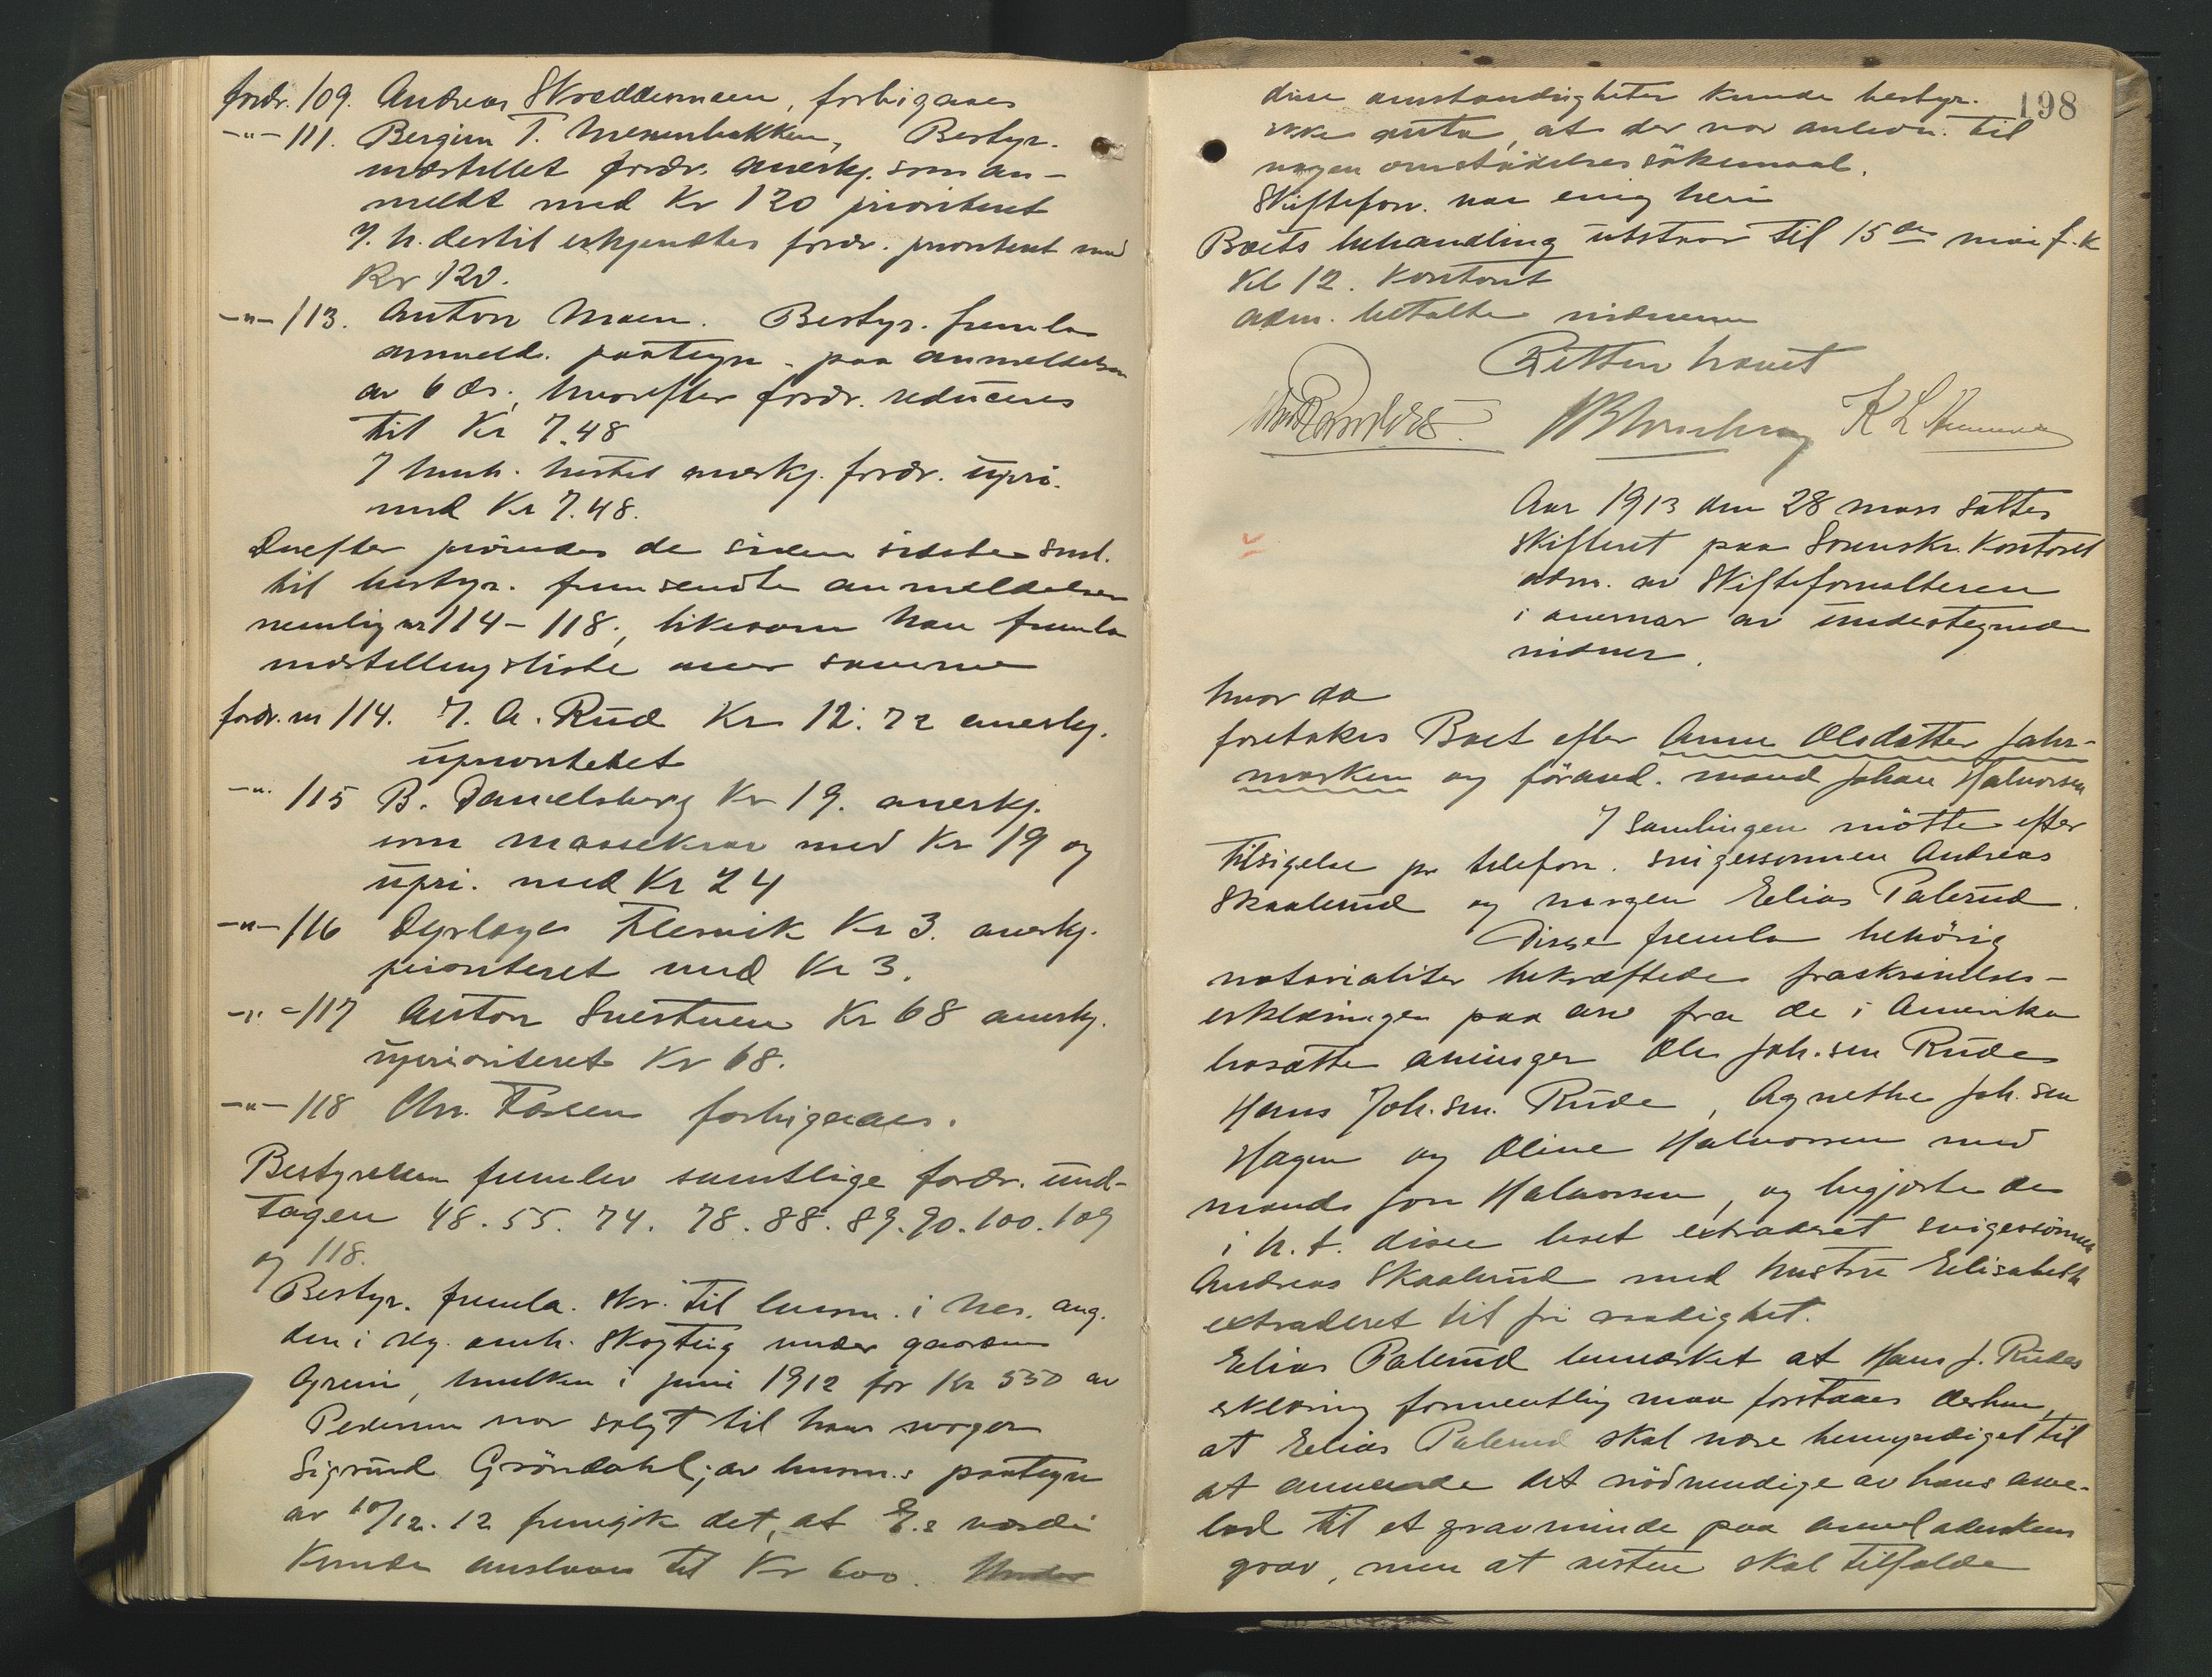 fordr. 109. Andreas Skreddermoen, forbigaaes
-"- 111. Bergini T. Bestyr.
indstillet fordr. anerkj. som an-
meldt med Kr 120 prioritert
I. h. dertil erkjendtes fordr. prioritert med
Kr 120.
-"- 113. Anton Moen. Bestyr. fremla
anmeld. paategn. paa anmeldelsen
av 6 ds., hvorefter fordr. reduceres
til Kr 7.48
I henh. hertil anerkj. fordr. upri.
med Kr 7.48.
Derefter prövedes de siden sidste saml.
til bestyr. fremsendte anmeldelser
nemlig nr 114 - 118., likesom han fremla
indstillingsliste over samme
fordr. nr 114. I. A. Rud Kr 12.72 anerkj.
uprioritert
-"- 115 B. Danielsberg Kr 19. anerkj.
som massekrav med Kr 19 og
upri. med Kr 24
-"- 116 Dyrlæge Flesvik Kr 3. anerkj.
prioriteret med Kr 3.
-"- 117 Anton Snestuen Kr 68 anerkj.
uprioriteret Kr 68.
-"- 118 Chr. Fossen forbigaaes.
Bestyrelsen fremlev samtlige fordr. und-
tagen 48. 55. 74. 78. 88. 89. 90. 100. 109
og 118.
Bestyr. fremla. skr. til lensm. i Nes. ang.
den i reg. omh. skogteig under gaarden
Grini, hvilken i juni 1912 for Kr 550 av
Pedersen var solgt til hans svoger
Sigurd Gröndahl; av lensm.s paategn
av 10/12.12 fremgik det, at E.s værdi
kunde anslaaes til Kr 600. Under
198
disse omstændigheter kunde bestyr.
ikke anta, at der var anledn. til
nogen omstödelsessöksmaal.
Skifteforv. var enig heri
Boets behandling utstaar til 15de mai f. k
Kl 12. Kontoret
Adm. betalte vidnerne
Retten hævet
K L
Aar 1913 den 28 mars sattes
skifteret paa Sorenskr. Kontoret
adm. av Skifteforvalteren
i overvær av undertegnede
vidner.
hvor da
foretokes Boet efter Anne Olsdatter Jahr-
marken og förand. mand Johan Halvorsen
I samlingen mötte efter
tilsigelse pr telefon. svigersønnen Andreas
Skaalerud og svogeren Elias Palerud.
Disse fremla behörig
notorialiter bekræftede fraskrivelses-
erklæringer paa arv fra de i Amerika
bosatte arvinger Ole Joh.sen Rude
Hans Joh.sen. Rude, Agnethe Joh. sen
Hagen og Oline Halvorsen med
mand Jon Halvorsen, og begjærte de
i h. t. disse boet extraderet svigersönnen
Andreas Skaalerud med hustru Elisabeth
extraderet til fri raadighet.
Elias Palerud bemærket at Hans J. Rudes
erklæring formentlig maa forstaaes derhen,
at Elias Palerud skal være bemyndiget til
at anvende det nödvendige av hans arve-
lod til et gravminde paa arveladerskens
grav, men at resten skal tilfalde